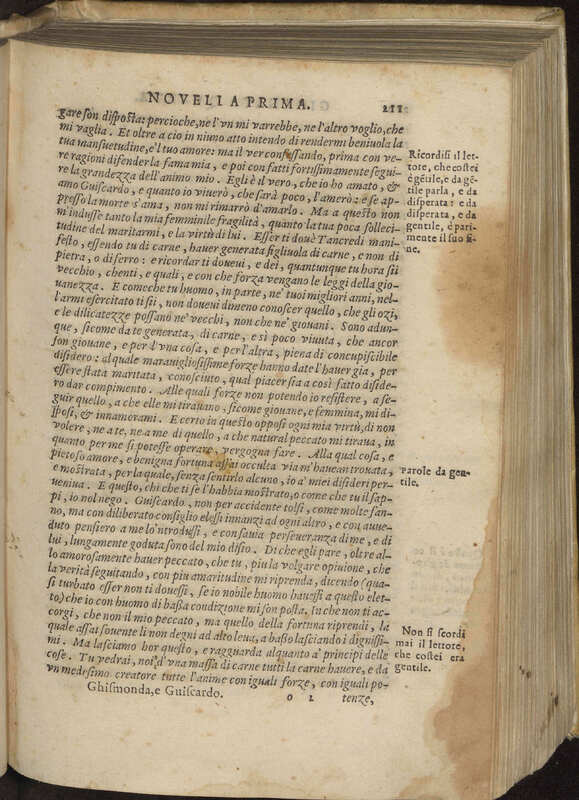 NOVELLA PRIMA. 211
gare son disposta: percioche, ne l'vn mi varrebbe, ne l'altro voglio, che
mi vaglia. Et oltre a cio in niuno atto intendo di rendermi beniuola la
tua mansuetudine, e'l tuo amore: ma il ver confessando, prima con ve-
re ragioni difender la fama mia, e poi con fatti fortissimamente segui-
re la grandezza dell'animo mio. Egli è il vero, che io ho amato, &
amo Guiscardo, e quanto io viuerò, che sarà poco, l'amerò: e se ap-
presso la morte s'ama, non mi rimarrò d'amarlo. Ma a questo non
m'indusse tanto la mia femminile fragilità, quanto la tua poca solleci-
tudine del maritarmi, e la virtù di lui. Esser ti douè Tancredi mani-
festo, essendo tu di carne, hauer generata figliuola di carne, e non di
pietra, o di ferro: e ricordar ti doueui, e dei, quantunque tu hora sii
vecchio, chenti, e quali, e con che forza vengano le leggi della gio-
uanezza. E comeche tu huomo, in parte, ne' tuoi migliori anni, nel-
l'armi esercitato ti sii, non doueui dimeno conoscer quello, che gli ozi,
e le dilicatezze possano ne' vecchi, non che ne' giouani. Sono adun-
que, sicome da te generata, di carne, e sì poco viuuta, che ancor
son giouane, e per l'vna cosa, e per l'altra, piena di concupiscibile
disidero: al quale marauigliosissime forze hanno date l'hauer gia, per
essere stata maritata, conosciuto, qual piacer sia a così fatto diside-
ro dar compimento. Alle quali forze non potendo io resistere, a se-
guir quello, a che elle mi tirauano, sicome giouane, e femmina, mi di-
sposi, & innamorami. E certo in questo opposi ogni mia virtù, di non
volere, ne a te, ne a me di quello, a che natural peccato mi tiraua, in
quanto per me si potesse operare, vergogna fare. Alla qual cosa, e
pietoso amore, e benigna fortuna assai occulta via m'hauean trouata,
e mostrata, per la quale, senza sentirlo alcuno, io a' miei disideri per-
ueniua. E questo, chi che ti se l'habbia mostrato, o come che tu il sap-
pi, io nol nego. Guiscardo, non per accidente tolsi, come molte fan-
no, ma con diliberato consiglio elessi innanzi ad ogni altro, e con auue-
duto pensiero a me lo'ntrodussi, e con sauia perseueranza di me, e di
lui, lungamente goduta sono del mio disio. Di che egli pare, oltre al-
lo amorosamente hauer peccato, che tu, piu la volgare opinione, che
la verità seguitando, con piu amaritudine mi riprenda, dicendo (qua-
si turbato esser non ti douessi, se io nobile huomo hauessi a questo elet-
to) che io con huomo di bassa condizione mi son posta. In che non ti ac-
corgi, che non il mio peccato, ma quello della fortuna riprendi, la
quale assai souente li non degni ad alto leua, a basso lasciando i dignissi-
mi. Ma lasciamo hor questo, e ragguarda alquanto a' principi delle
cose. Tu vedrai, noi d'vna massa di carne tutti la carne hauere, e da
vn medesimo creatore tutte l'anime con iguali forze, con iguali po-
Ghismonda, e Guiscardo. O 2 tenze,
Ricordisi il let-
tore, che costei
è gẽtile, e da gẽ-
tile parla, e da
disperata: e da
disperata, e da
gentile, è pari-
mente il suo fi-
ne.
Parole da gen-
tile.
Non si scordi
mai il lettore,
che costei era
gentile.